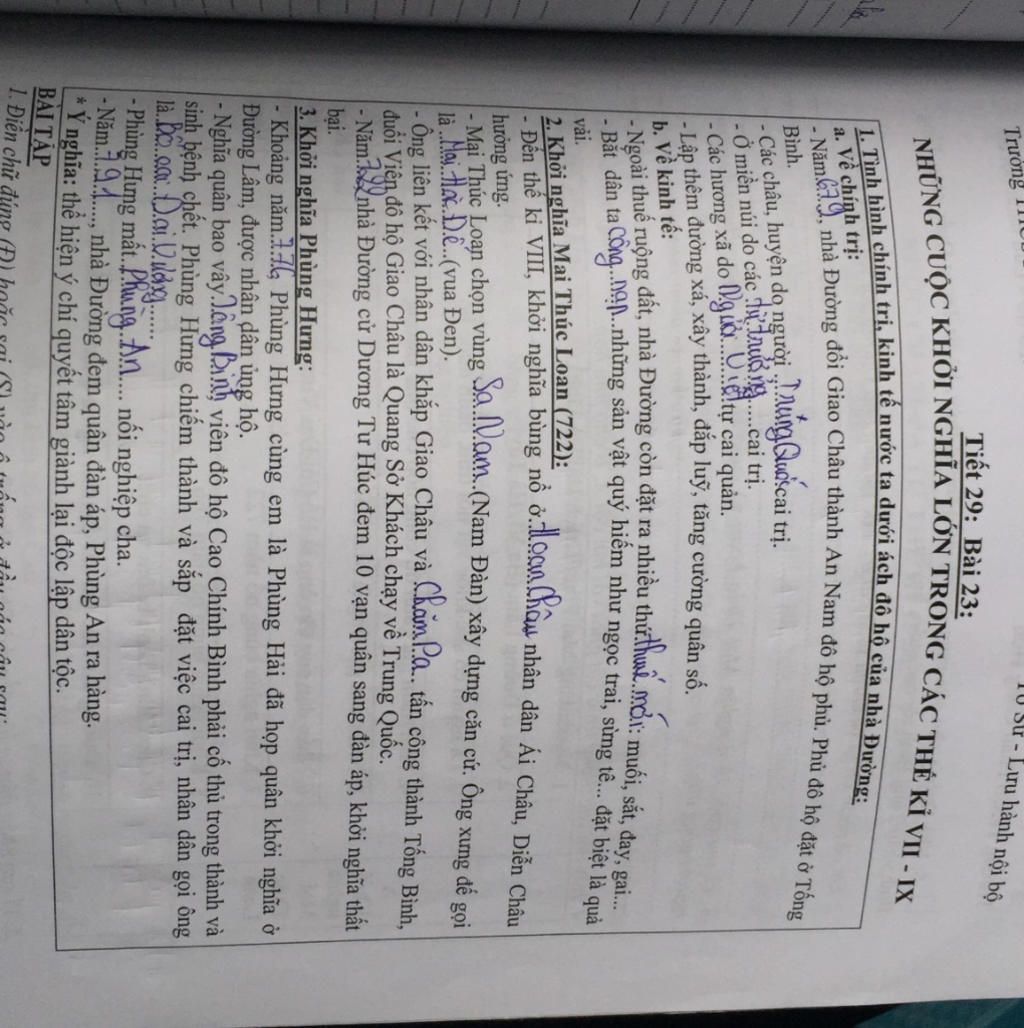 Trường
Tổ Sử - Lưu hành nội bộ
Tiết 29: Bài 23:
NHỮNG CUỘC KHỞI NGHĨA LỚN TRONG CÁC THẾ KỈ VII - IX
1. Tình hình chính trị, kinh tế nước ta dưới ách đô hộ của nhà Đường:
a. Về chính trị:
- Năm 679, nhà Đường đổi Giao Châu thành An Nam đô hộ phủ. Phủ đô hộ đặt ở Tống
Bình.
- Các châu, huyện do người Trung Quốc cai trị.
- Ở miền núi do các tù trưởng.....cai trị.
- Các hương xã do Người Việt tự cai quản.
- Lập thêm đường xá, xây thành, đắp luỹ, tăng cường quân số.
b. Về kinh tế:
- Ngoài thuế ruộng đất, nhà Đường còn đặt ra nhiều thứ thuế mới: muối, sắt, đay, gai....
- Bắt dân ta cống nạp...những sản vật quý hiếm như ngọc trai, sừng tê... đặt biệt là quả
vải.
2. Khởi nghĩa Mai Thúc Loan (722):
- Đến thế kỉ VIII, khởi nghĩa bùng nổ ở Hoan Châu nhân dân Ái Châu, Diễn Châu
hưởng ứng.
- Mai Thúc Loan chọn vùng Sa Nam..(Nam Đàn) xây dựng căn cứ. Ông xưng đế gọi
là Mai Hắc Đế..(vua Đen).
- Ông liên kết với nhân dân khắp Giao Châu và Chăm Pa.. tấn công thành Tống Bình,
đuổi Viên đô hộ Giao Châu là Quang Sở Khách chạy về Trung Quốc.
- Năm 722 nhà Đường cử Dương Tư Húc đem 10 vạn quân sang đàn áp, khởi nghĩa thất
bại.
3. Khởi nghĩa Phùng Hưng:
- Khoảng năm 776, Phùng Hưng cùng em là Phùng Hải đã họp quân khởi nghĩa ở
Đường Lâm, được nhân dân ủng hộ.
- Nghĩa quân bao vây Tống Bình, viên đô hộ Cao Chính Bình phải cố thủ trong thành và
sinh bệnh chết. Phùng Hưng chiếm thành và sắp đặt việc cai trị, nhân dân gọi ông
là Bố Cái Đại Vương......
- Phùng Hưng mất. Phùng An.... nối nghiệp cha.
- Năm...791...., nhà Đường đem quân đàn áp, Phùng An ra hàng.
* Ý nghĩa: thể hiện ý chí quyết tâm giành lại độc lập dân tộc.
BÀI TẬP
1. Điền chữ đúng (Đ) hoặc sai (S) vào ô trống ở đầu các câu sau: